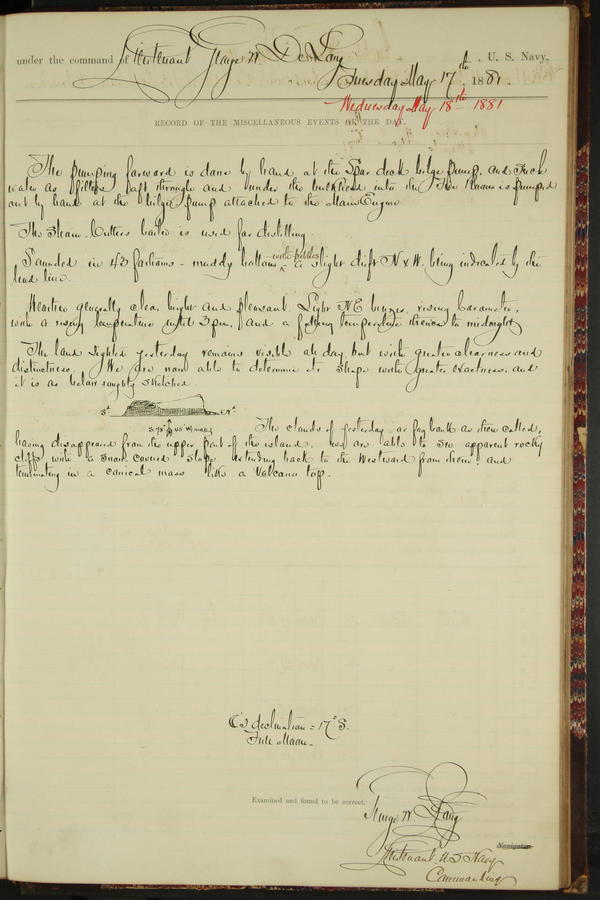 under the command of Lieutenant George W. De Long, U. S. Navy,
Tuesday May 17th, 1881.
Wednesday May 18th 1881
RECORD OF THE MISCELLANEOUS EVENTS OF THE DAY.
The pumping forward is done by hand at the Spar deck bilge pump, and such
water as filters aft through and under the bulkhead into the Fire Room is pumped
out by hand at the bilge pump attached to the Main Engine
The Steam Cutters boiler is used for distilling.
Sounded in 43 fathoms - muddy bottom - with pebbles a slight drift N & W. being indicated by the
lead line.
Weather generally clear, bright and pleasant. Light NE breezes, rising barometer,
with a rising temperature until 3 pm. and a falling temperature thence to midnight
The land sighted yesterday remains visible all day, but with greater clearness and
distinctness. We are now able to determine its shape with greater exactness, and
it is as below roughly sketched
Sd Nd
S 78° 45' W (mag)
The clouds of yesterday, or fog bank as then called,
having disappeared from the upper part of the island, we are able to see apparent rocky
cliffs with a snow covered slope extending back to the Westward from them, and
terminating in a conical mass like a volcano top.
C's declination = 17° S.
Full Moon.
Examined and found to be correct.
George W. De Long
Navigator.
Lieutenant U.S. Navy
Commanding